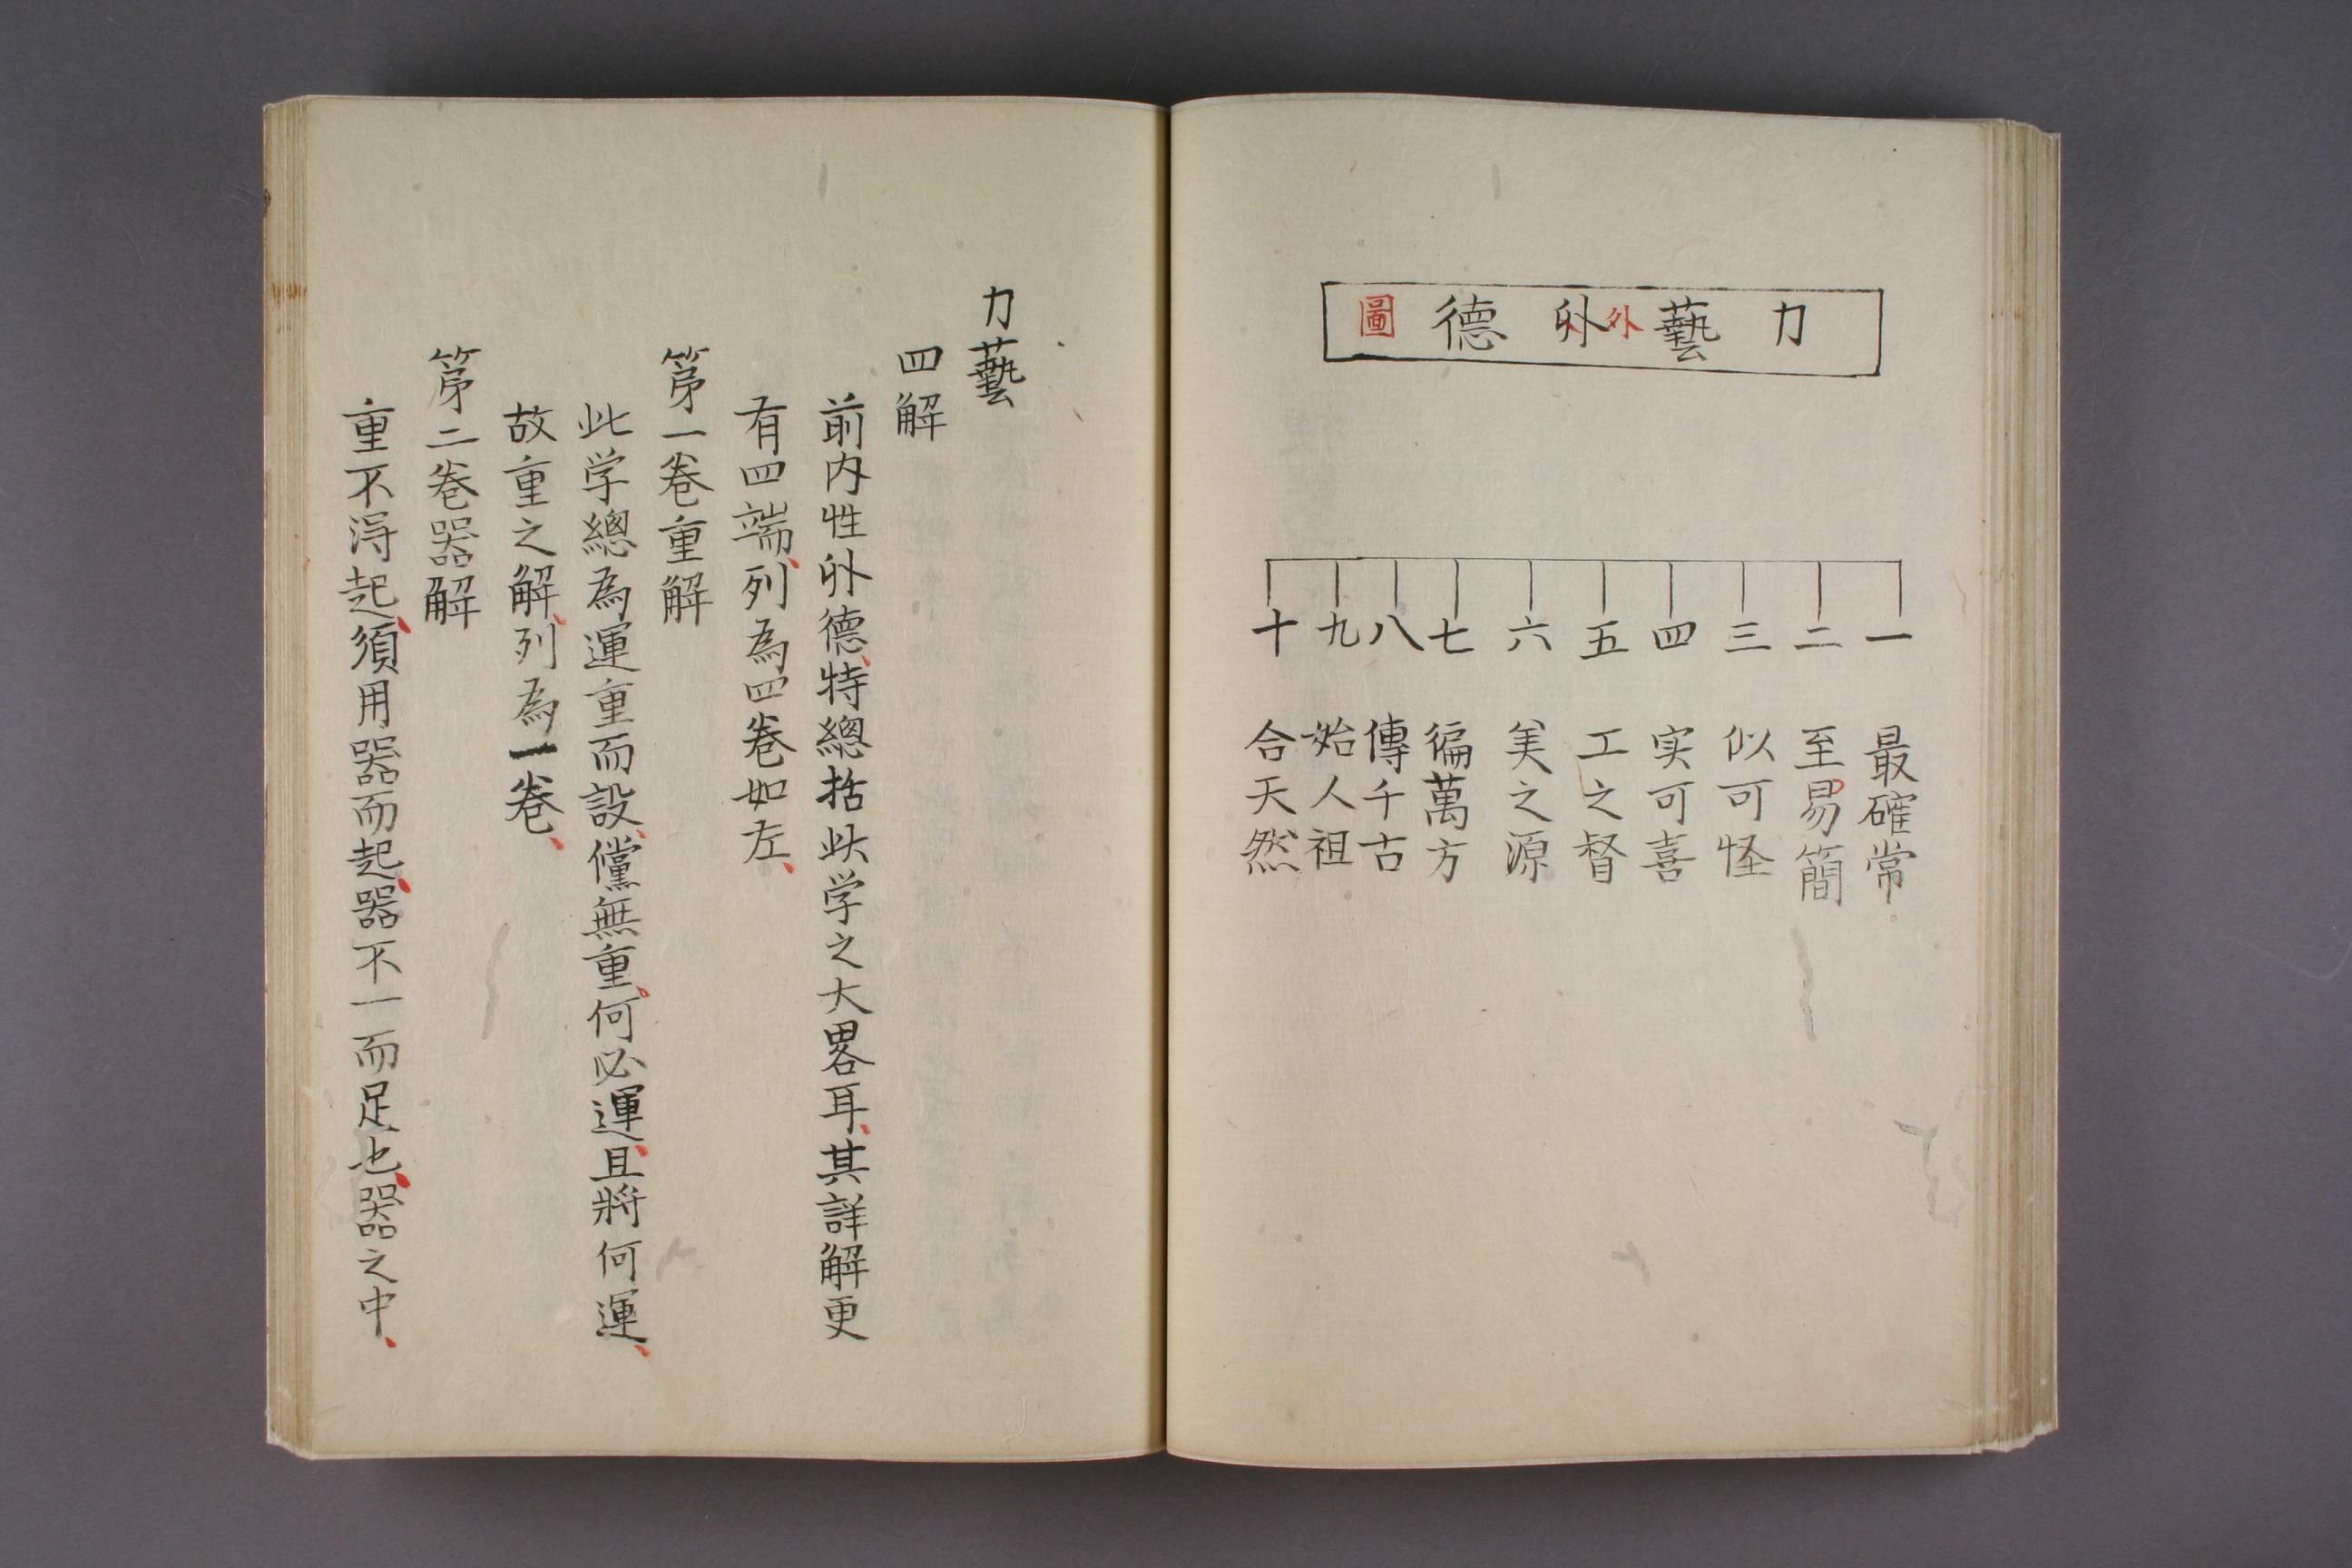 力藝外外德圖
一 最確常
二 至易簡
三 似可怪
四 实可喜
五 工之督
六 美之源
七 徧萬方
八 傳千古
九 始人祖
十 合天然
力藝
四解
前内性外德、特總括此学之大畧耳、其詳解更
有四端、列為四卷如左、
第一卷重解
此学總為運重而設、儻無重、何必運、且將何運、
故重之解、列為一卷、
第二卷器解
重不淂起、須用器而起、器不一而足也、器之中、